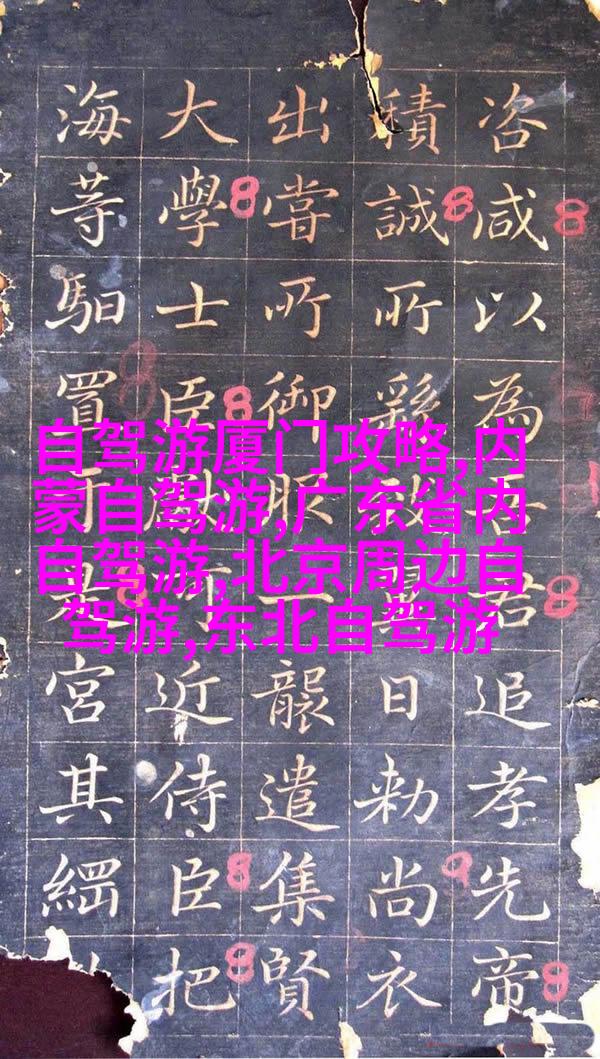 自驾游厦门攻略,内
蒙自驾游,广东省内
自驾游,北京周边自
驾游,东北自驾游
咨咸以為君追孝先帝
積誠所日勅尚衣
出嘗所御服一襲遣集賢
大學士臣近侍臣把
海等馹置宮其